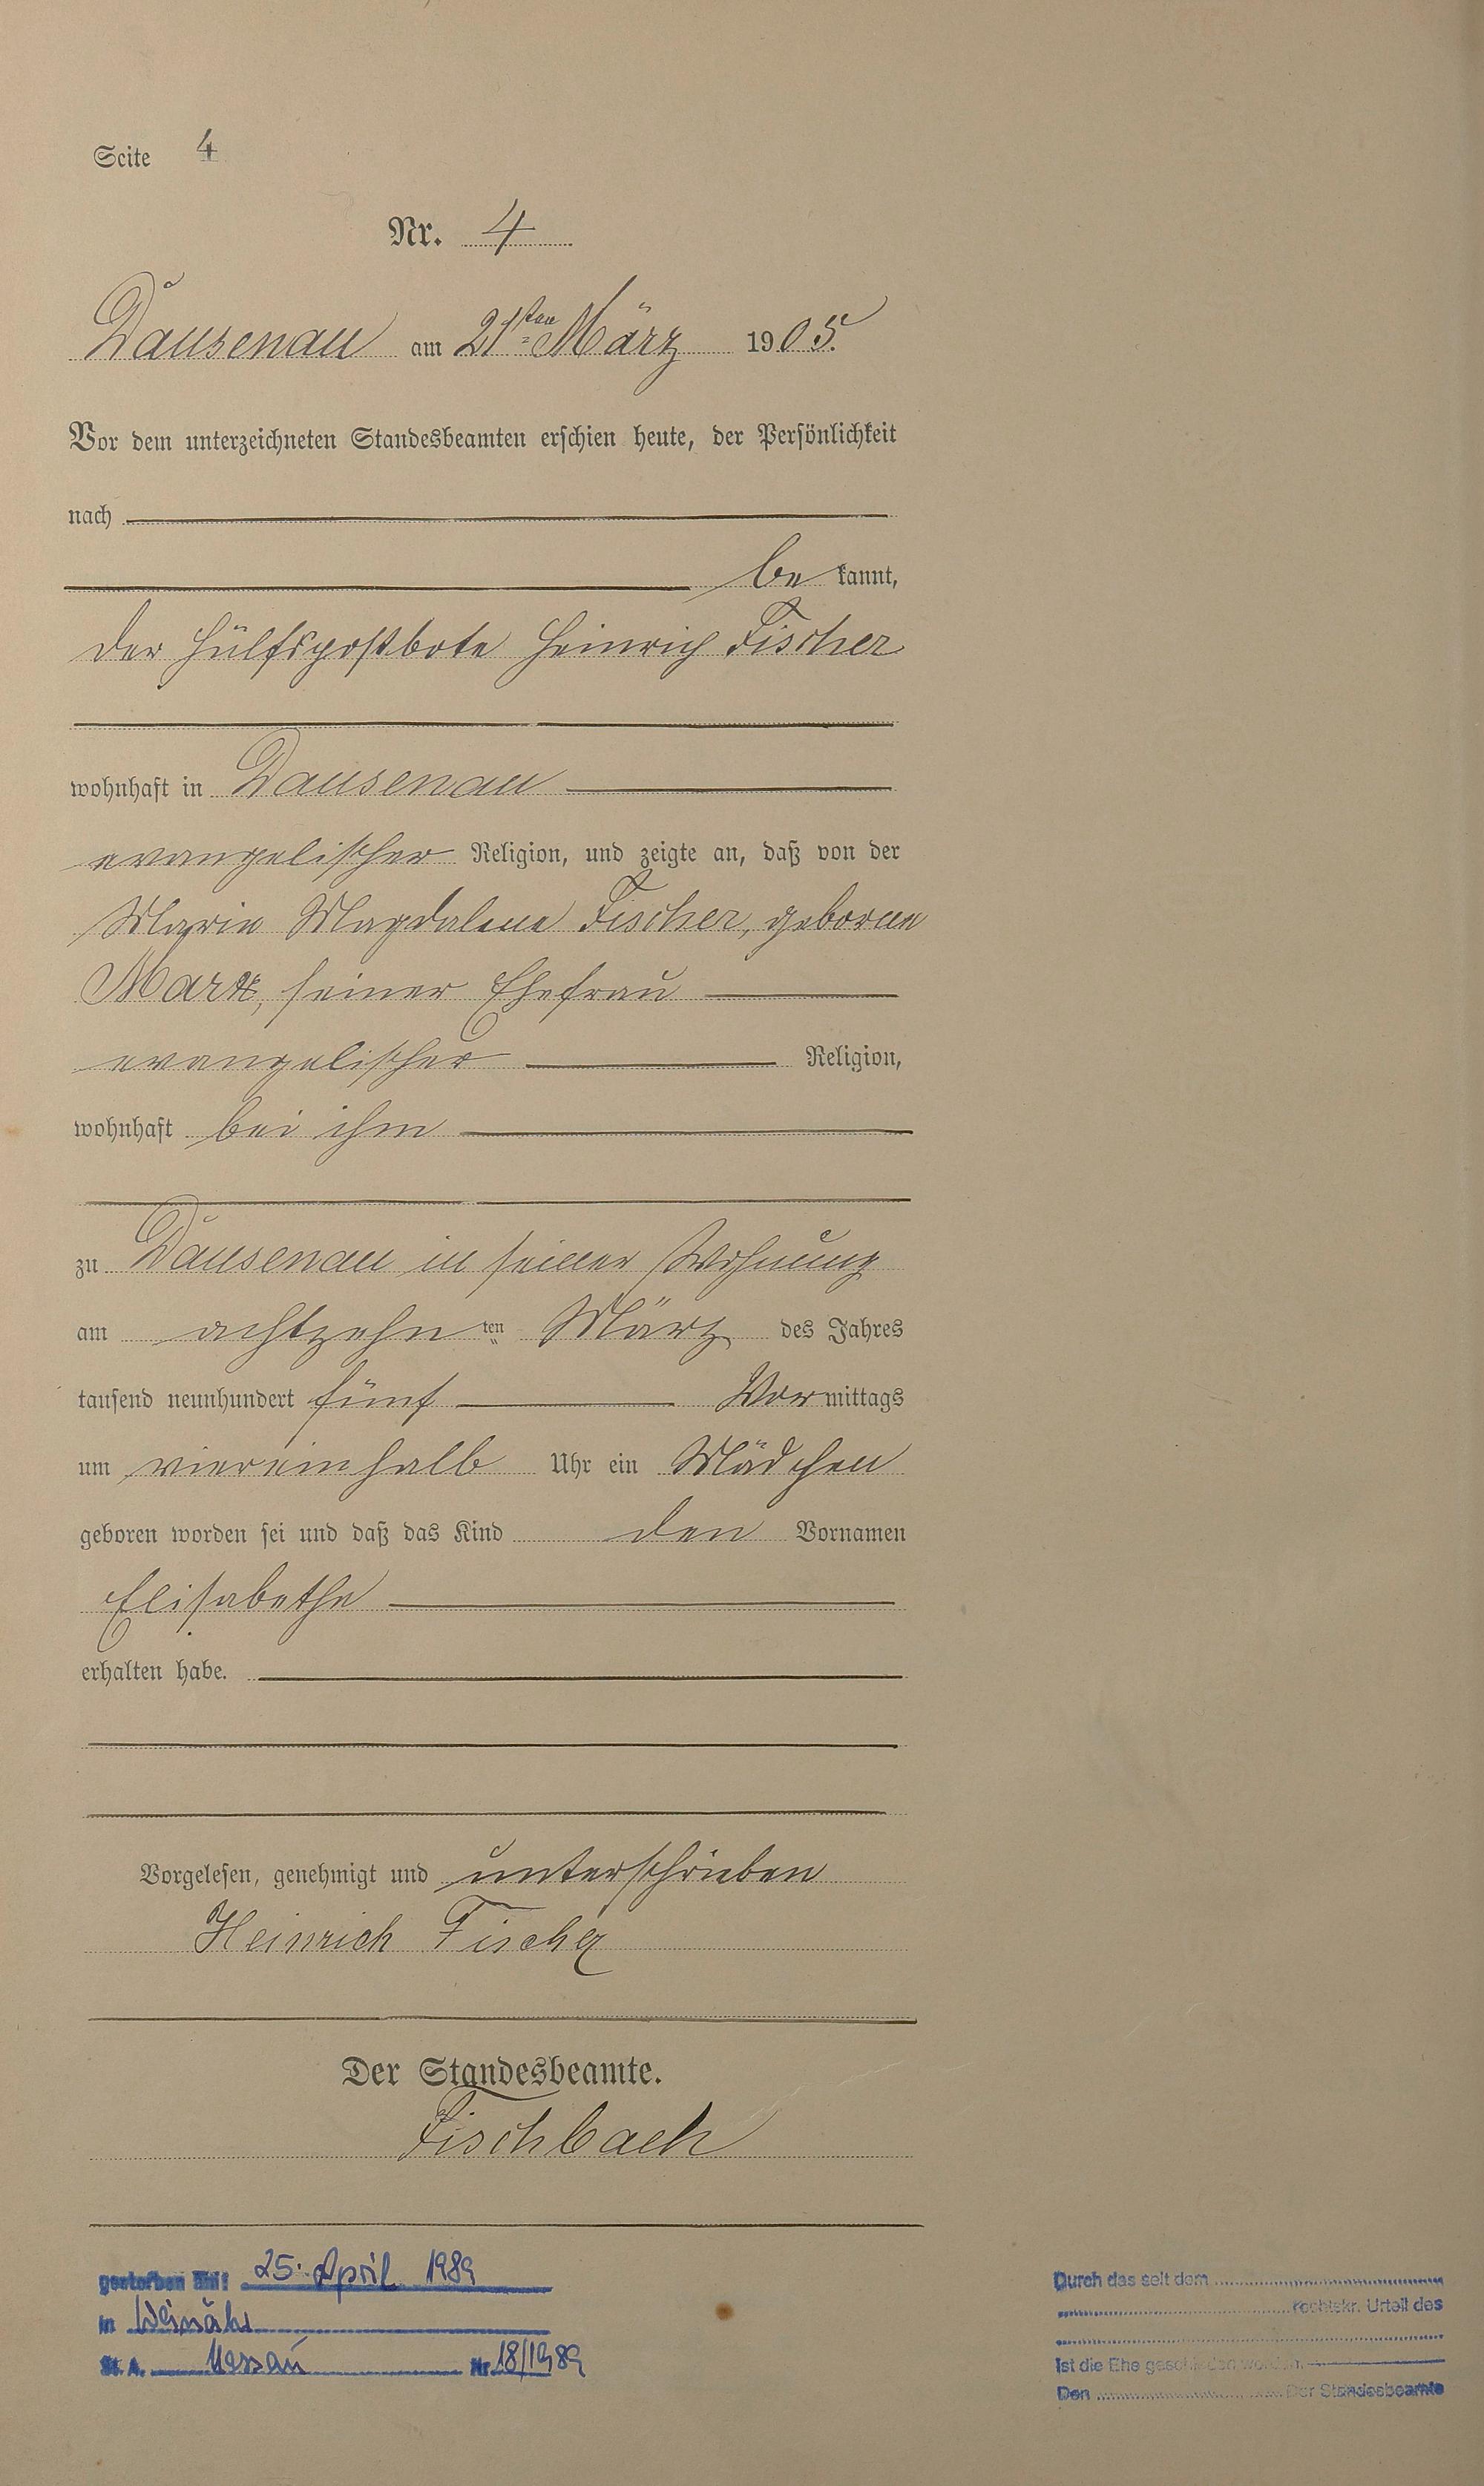 Seite 4
Nr. 4
Dausenau am 21ten März 1905.
Vor dem unterzeichneten Standesbeamten erschien heute, der Persönlichkeit
nach
be kannt,
der Hülfspostbote Heinrich Fischer
wohnhaft in Dausenau
evangelischer Religion, und zeigte an, daß von der
Maria Magdalena Fischer, geborene
Marx, seiner Ehefrau
evangelischer Religion,
wohnhaft bei ihm
zu Dausenau in seiner Wohnung
am achtzehn ten März des Jahres
tausend neunhundert fünf Vormittags
um viereinhalb Uhr ein Mädchen
geboren worden sei und daß das Kind den Vornamen
Elisabethe
erhalten habe.
Vorgelesen, genehmigt und unterschrieben
Heinrich Fischer
Der Standesbeamte.
Fischbach
gestorben am: 25. April 1989
in Weinähr
St. A. Nassau Nr. 18/1989
Durch das seit dem
rechtskr. Urteil des
Ist die Ehe geschieden worden.
Den Der Standesbeamte